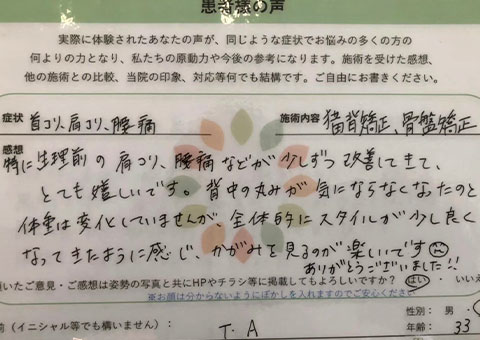 患者様の声
実際に体験されたあなたの声が、同じような症状でお悩みの多くの方の
何よりの力となり、私たちの原動力や今後の参考になります。施術を受けた感想、
他の施術との比較、当院の印象、対応等何でも結構です。ご自由にお書きください。
症状 首コリ、肩コリ、腰痛 施術内容 猫背矯正、骨盤矯正
感想
特に生理前の肩コリ、腰痛などが少しずつ改善してきて、
とても嬉しいです。背中の丸みが気にならなくなったのと
体重は変化していませんが、全体的にスタイルが少し良く
なってきたように感じ、かがみを見るのが楽しいです
ありがとうございました!!
頂いたご意見・ご感想は姿勢の写真と共にHPやチラシ等に掲載してもよろしいですか? はい ・ いいえ
※お顔は分からないようにぼかしを入れますのでご安心ください
前(イニシャル等でも構いません): T.A 性別: 男 ・
年齢: 33